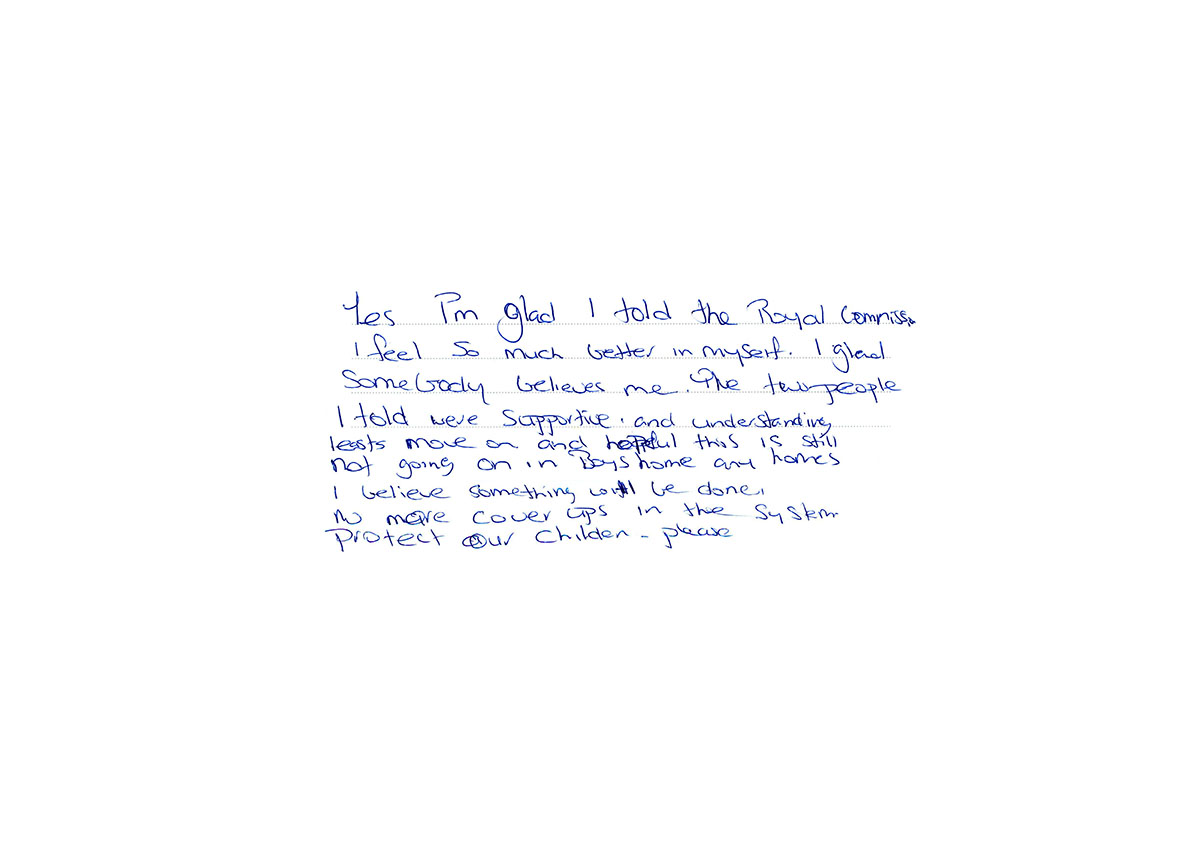 Yes I'm glad I told the Royal Commiss
I feel so much better in myself. I glad
Somebody believes me. The two people
I told were supportive. and understanding
leasts move on and hopeful this is still
not going on in Boys home any homes
I believe something will be done.
No more cover ups in the System
Protect our Childen - please